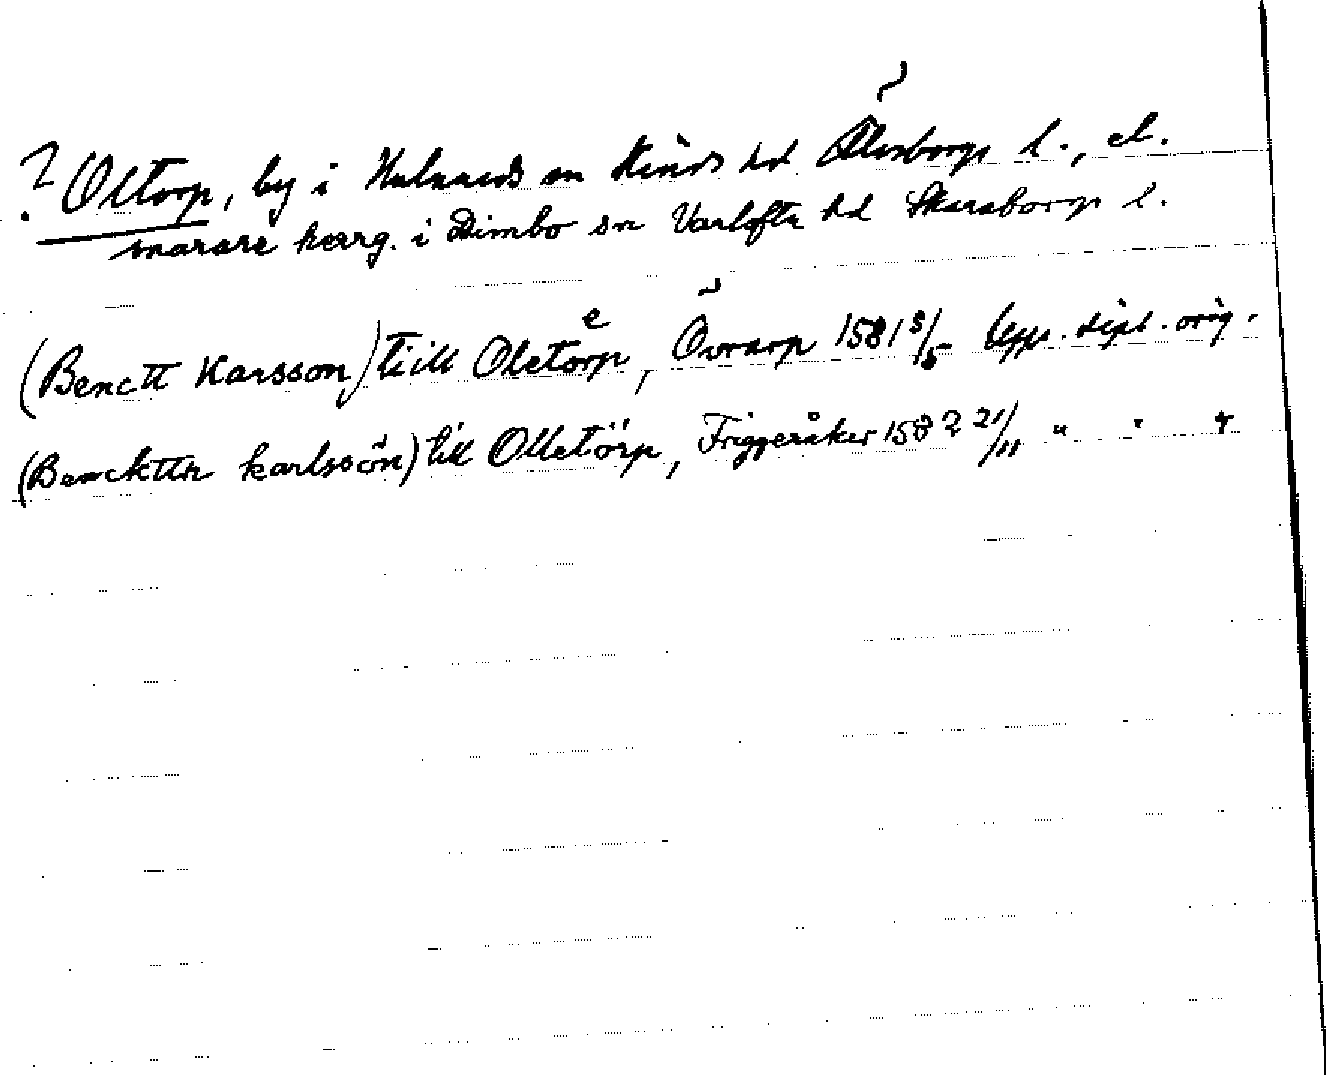 ? Oltorp, by i Hulareds sn Kinds hd Älvsborgs l., el.
snarare herrg. i Dimbo sn Vartofta hd Skaraborgs l.
(Benctt Karsson) till Oletorp, Övrarp 1581 8/5 Upps. dipl. orig.
(Benckttn karlssön) till Olletörp, Friggeråker 1582 21/11 " " "